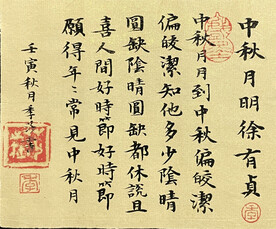 中秋月明徐有貞
中秋月月到中秋偏皎潔
偏皎潔知他多少陰晴
圓缺陰晴圓缺都休說且
喜人間好時節好時節
願得年〻常見中秋月
壬寅秋月李